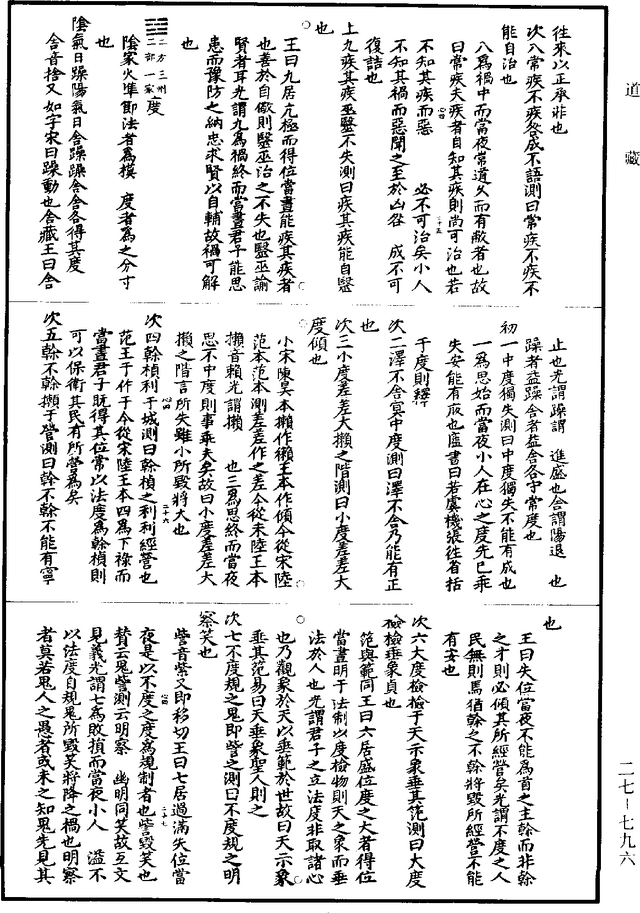 道藏
往來以正承非也
次八常疾不疾咎成不語測曰常疾不疾不
能自治也
八爲禍中而當夜常道久而有敝者也故
曰常疾夫疾者自知其疾則尚可治也若
不知其疾而惡 必不可治矣小人
不知其禍而惡聞之至於凶咎 成不可
復詰也
上九疾其疾巫毉不失測曰疾其疾能自毉
也
王曰九居亢極而得位當晝能疾其疾者
也善於自儆則毉巫治之不失也毉巫諭
賢者耳光謂九爲禍終而當晝君子能思
患而豫防之納忠求賢以自輔故禍可解
也
二方三州二部一家度
陰家火準節法者爲模 度者爲之分寸
也
陰氣日躁陽氣日舍躁躁舍舍各得其度
舍音捨又如字宋曰躁動也舍藏王曰舍
止也光謂躁謂 進盛也舍謂陽退 也
躁者益躁舍者益舍各守常度也
初一中度獨失測曰中度獨失不能有成也
一爲思始而當夜小人在心之度先已乖
失安能有成也虛書曰若虞機張往省括
于度則釋
次二澤不舍冥中度測曰澤不舍乃能有正
也
次三小度差差大攋之階測曰小度差差大
度傾也
小宋陳吳本攋作獺王本作傾今從宋陸
范本范本測差差作之差今從宋陸王本
攋音賴光謂攋 也三爲思終而當夜
思不中度則事乖夫矣故曰小度差差大
攋之階言所失雖小所毀將大也
次四榦楨利于城測曰榦楨之利利經營也
范王于作于今從宋陸王本四爲下祿而
當晝君子既得其位常以法度爲榦楨則
可以保衛其民有所營爲矣
次五榦不榦攋于營測曰榦不榦不能有寧
也
王曰失位當夜不能爲首之主榦而非榦
之才則必傾其所經營矣光謂不度之人
民無則焉猶榦之不榦將毀所經營不能
有安也
次六大度檢檢于天示象垂其范測曰大度
檢檢垂象貞也
范與範同王曰六居盛位度之大者得位
當晝明于法制以度檢物則天之象而垂
法於人也光謂君子之立法度非取諸心
也乃觀象於天以垂範於世故曰天示象
垂其范易曰天垂象聖人則之
次七不度規之鬼即訾之測曰不度規之明
察笑也
訾音紫又即移切王曰七居過滿失位當
夜是以不度之度爲規制者也訾毀笑也
贊云鬼訾測云明察 幽明同笑故互文
見義光謂七爲敗損而當夜小人 溢不
以法度自規鬼所毀笑將降之禍也明察
者莫若鬼人之愚者或未之知鬼先見其
二七-七九六